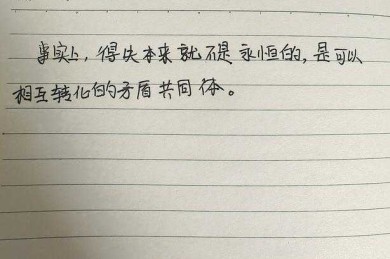 事实上，得失本来就不是永恒的，是可以
相互转化的矛盾共同体。